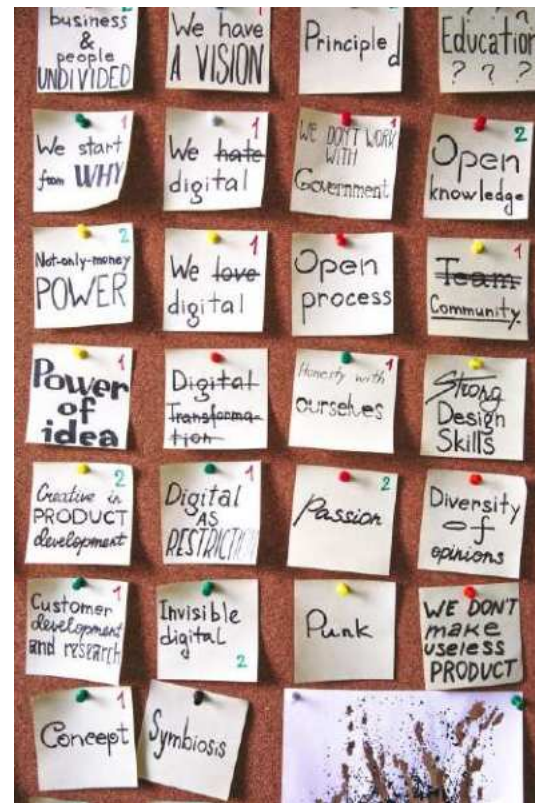 business
&
people
UNDIVIDED
We have
A VISION
1
Principled
Education
? ? ?
We start
from WHY
1
We hate
digital
1
WE DON'T WORK
WITH
Government
1
Open
knowledge
2
Not-only-money
POWER
2
We love
digital
1
Open
process
Team
Community
1
Power
of
idea
1
Digital
Transforma-
tion
Honesty with
ourselves
1
Strong
Design
Skills
Creative in
PRODUCT
development
2
Digital
AS
RESTRICTION
1
Passion
2
Diversity
of
opinions
Customer
development
and research
1
Invisible
digital
2
Punk
WE DON'T
make
useless
PRODUCT
Concept
1
Symbiosis